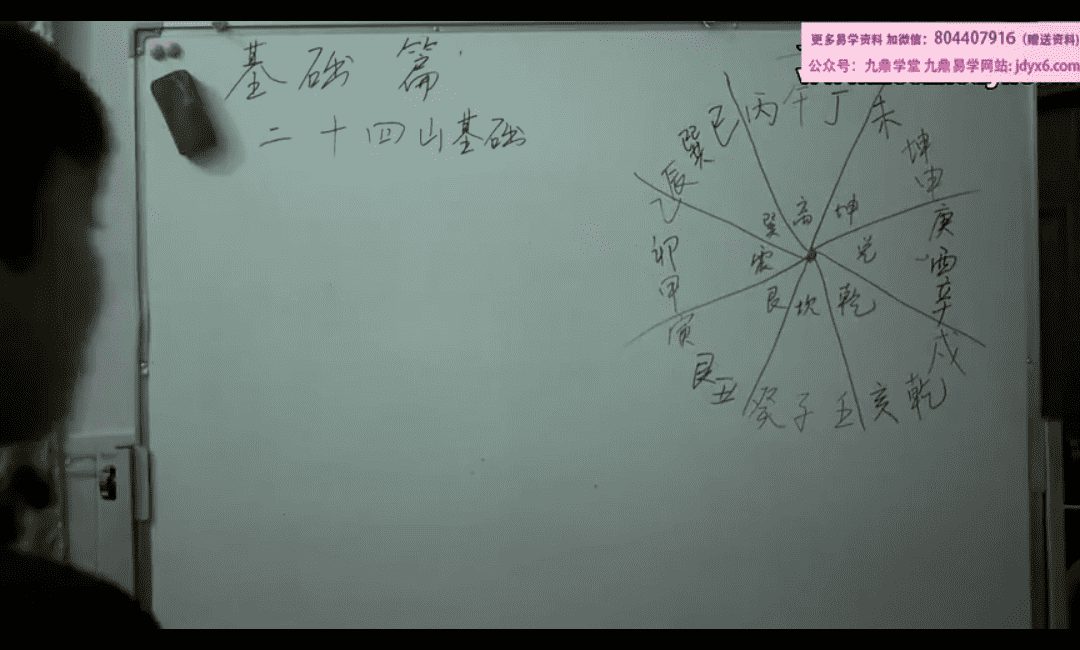 更多易学资料 加微信：804407916（赠送资料)
公众号：九鼎学堂 九鼎易学网站: jdyx6.com
基础篇
二十四山基础
丙午丁
未坤申
庚酉辛
戌乾亥
壬子癸
丑艮寅
甲卯乙
辰巽巳
离坤
兑
乾坎艮
震巽